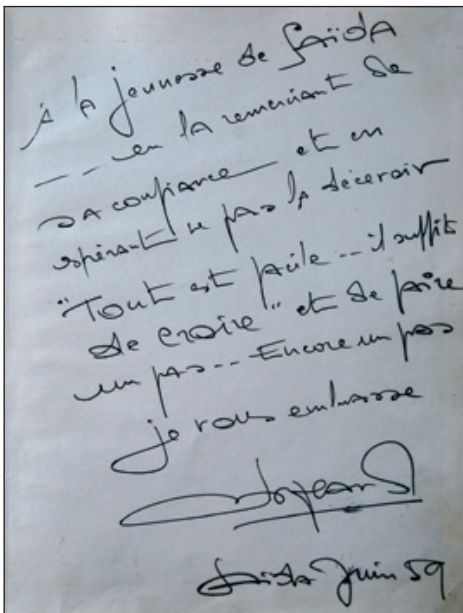 À la jeunesse de Saïda
--- en la remerciant de
sa confiance et en
espérant ne pas la décevoir
"Tout est facile... il suffit
de croire" et de faire
un pas... Encore un pas
je vous embrasse
Saïda Juin 59